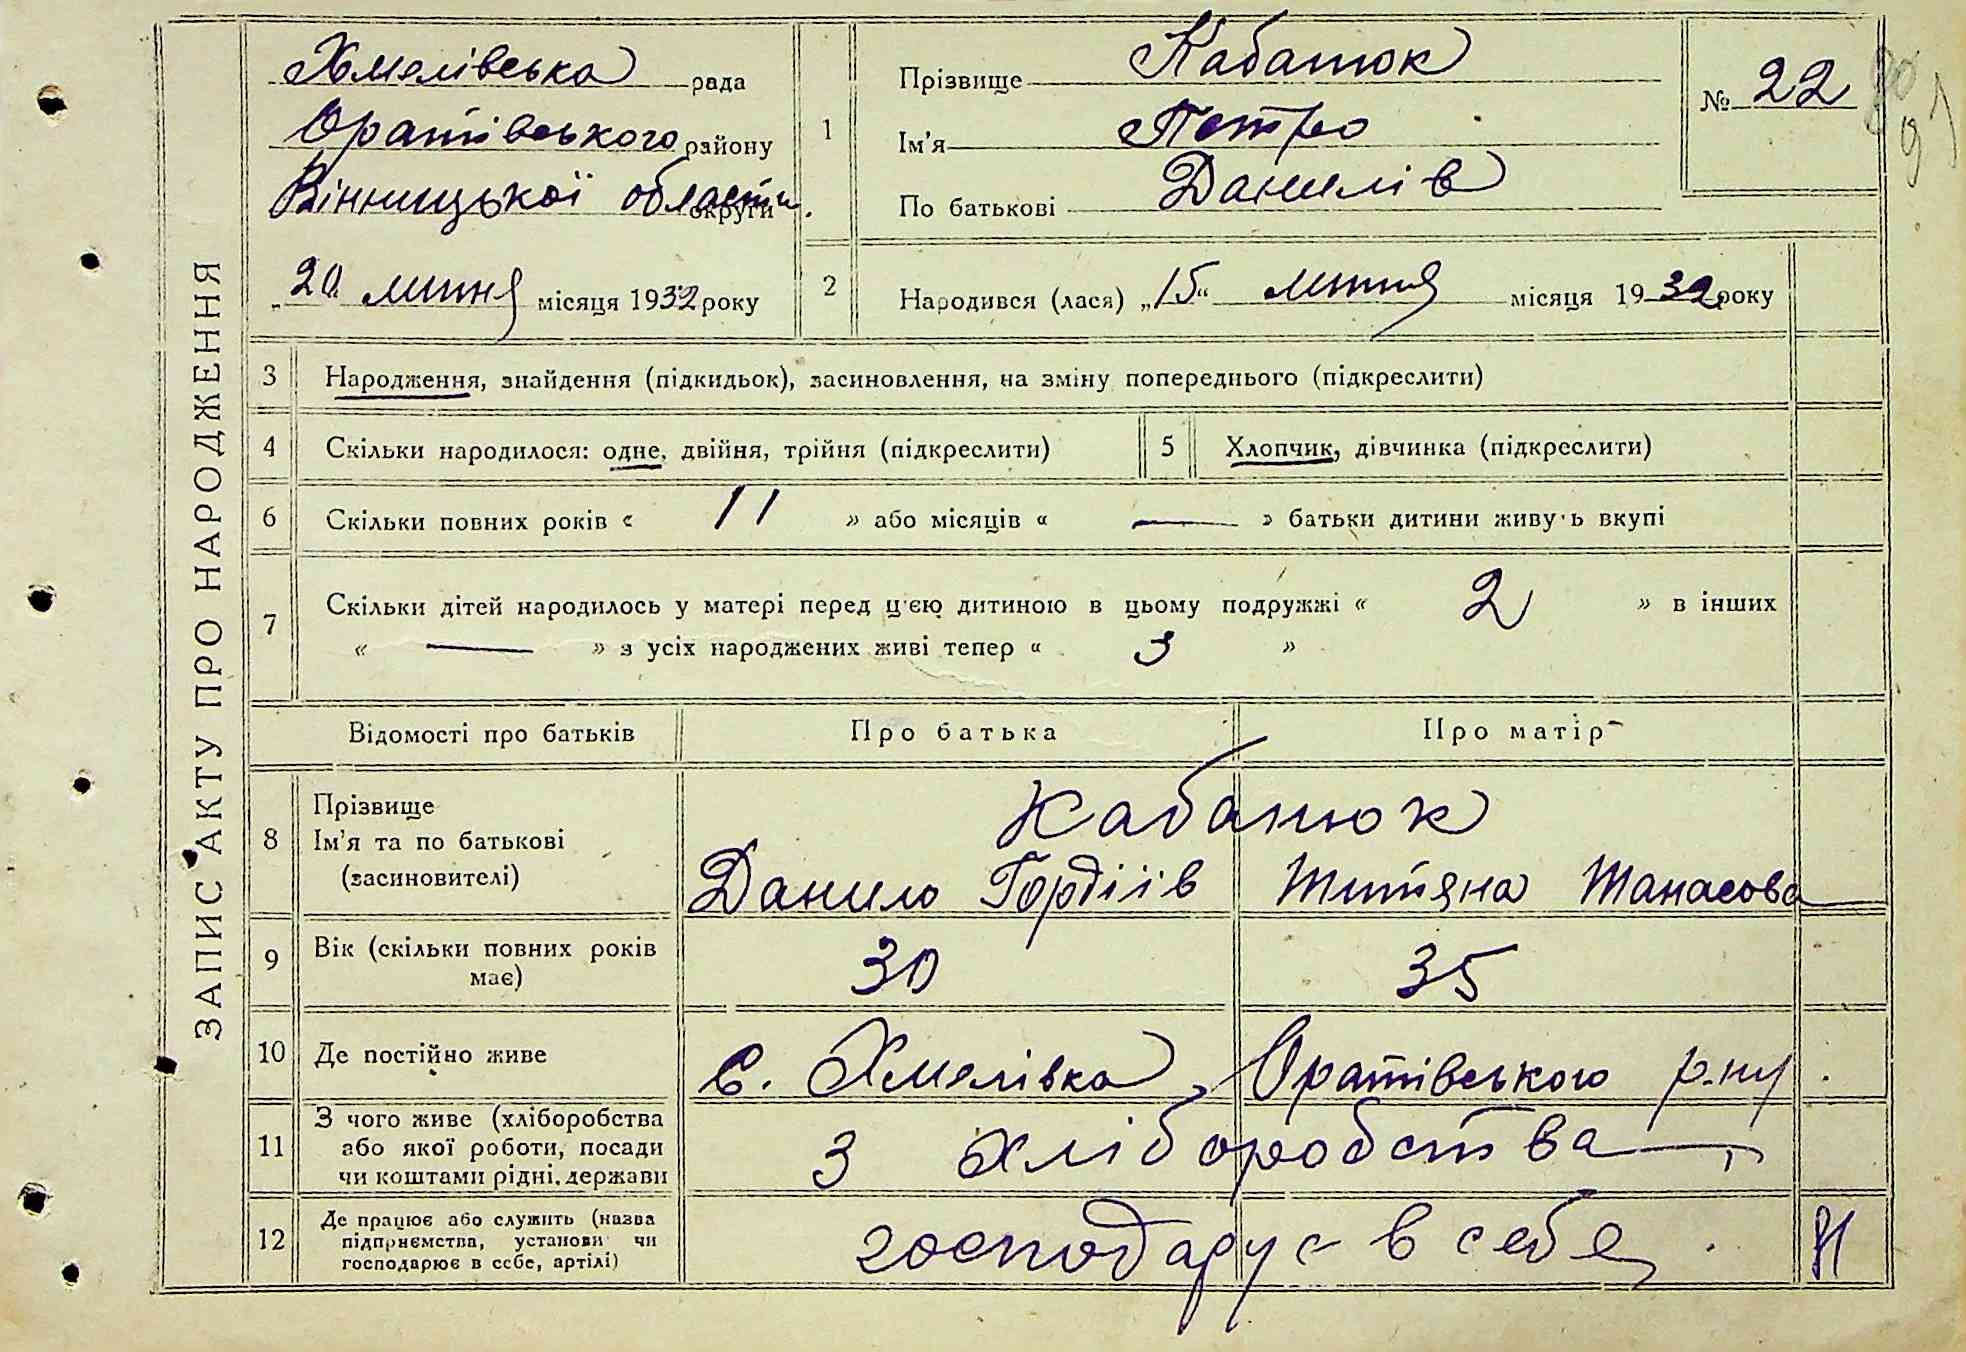 ЗАПИС АКТУ ПРО НАРОДЖЕННЯ
Хмелівська рада
Оратівського району
Вінницької области. округи
„20 липня місяця 1932 року
1
Прізвище Кабатюк
Ім'я Петро
По батькові Данилів
№ 22
91
2
Народився (лася) „15“ липня місяця 1932 року
3
Народження, знайдення (підкидьок), засиновлення, на зміну попереднього (підкреслити)
4
Скільки народилося: одне, двійня, трійня (підкреслити)
5
Хлопчик, дівчинка (підкреслити)
6
Скільки повних років « 11 » або місяців « — » батьки дитини живуь вкупі
7
Скільки дітей народилось у матері перед ц'єю дитиною в цьому подружжі « 2 » в інших
« — » з усіх народжених живі тепер « 3 »
Відомості про батьків
Про батька
Про матір
8
Прізвище
Ім'я та по батькові
(засиновителі)
Кабатюк
Данило Гордіїв
Титяна Танасова
9
Вік (скільки повних років
має)
30
35
10
Де постійно живе
С. Хмелівка, Оратівського р-ну.
11
З чого живе (хліборобства
або якої роботи, посади
чи коштами рідні, держави
З хліборобства
12
Де працює або служить (назва
підприємства, установи чи
господарює в себе, артілі)
господарує в себе.